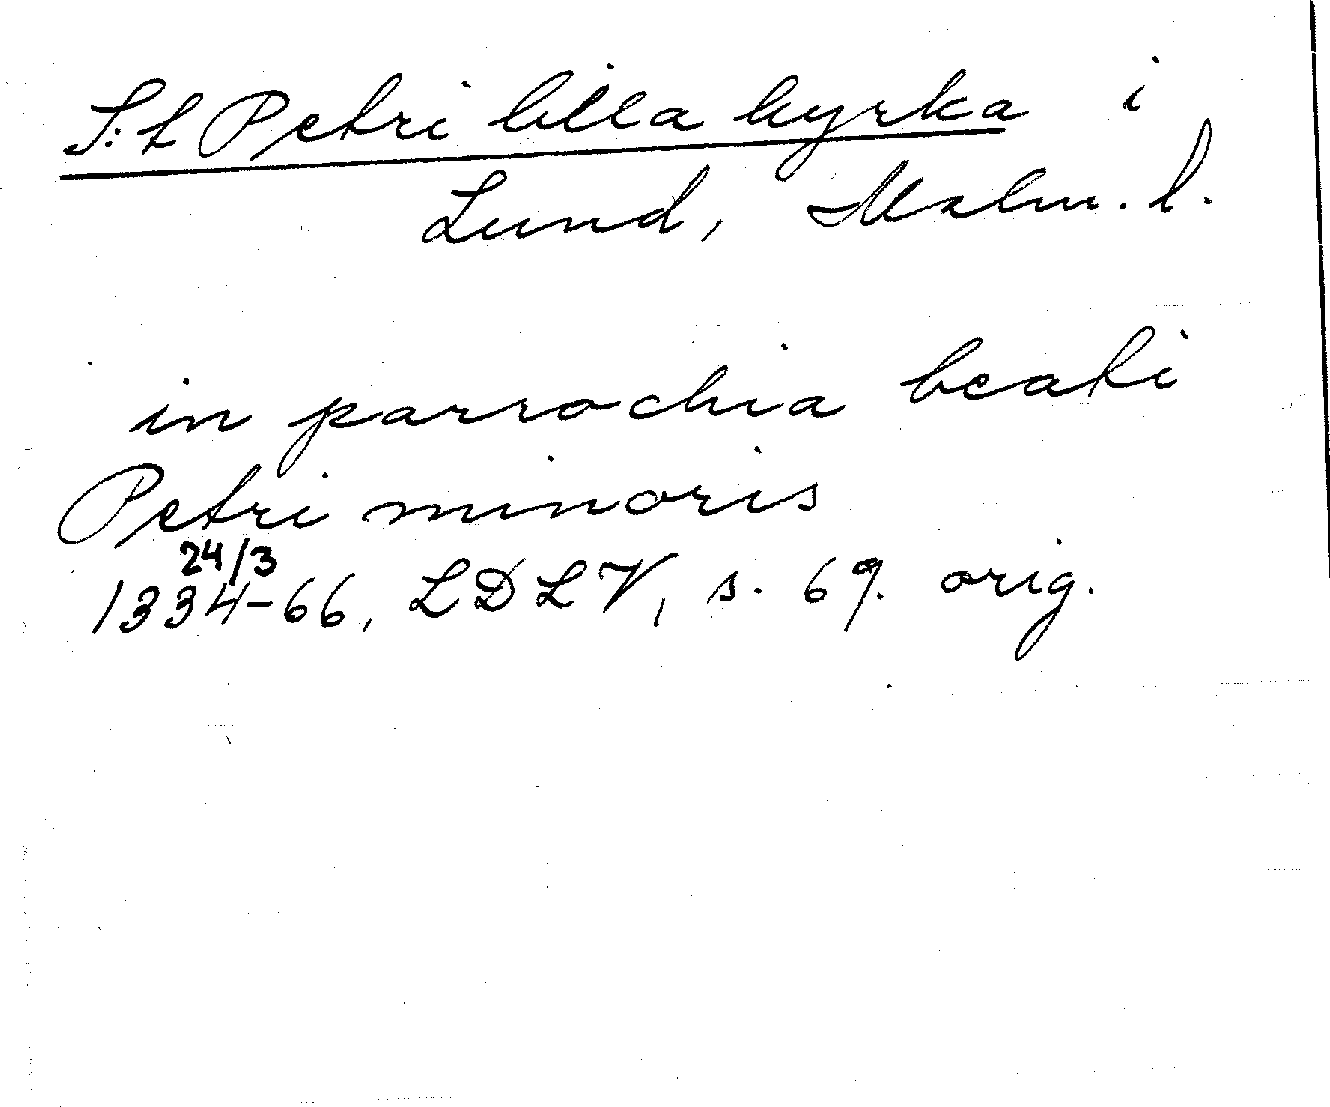 S:t Petri lilla kyrka i
Lund, Malm. l.
in parrochia beati
Petri minoris
24/3
1334-66, LDLV, s. 69. orig.